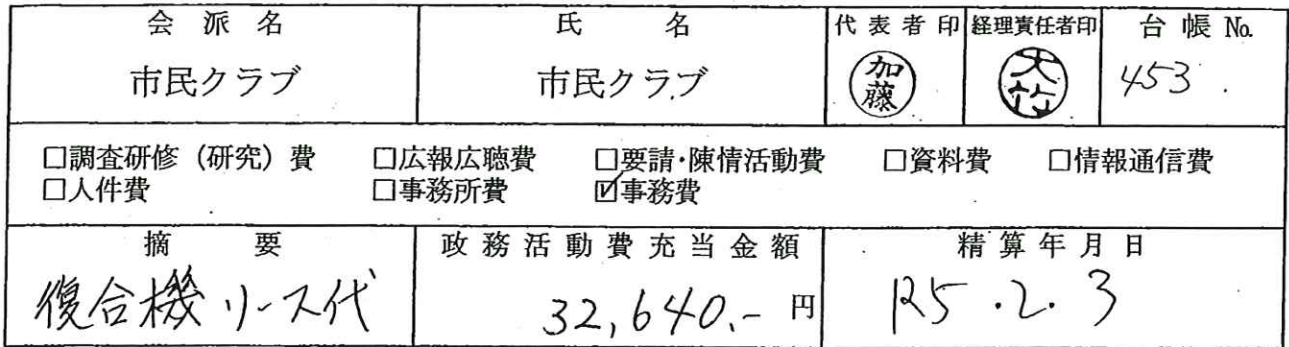 会派名 氏名 代表者印 経理責任者印 台帳 No.
市民クラブ 市民クラブ 加藤 大竹 453.
□調査研修（研究）費 □広報広聴費 □要請・陳情活動費 □資料費 □情報通信費
□人件費 □事務所費 ☑事務費
摘要 政務活動費充当金額 精算年月日
復合機リース代 32,640.- 円 R5.2.3